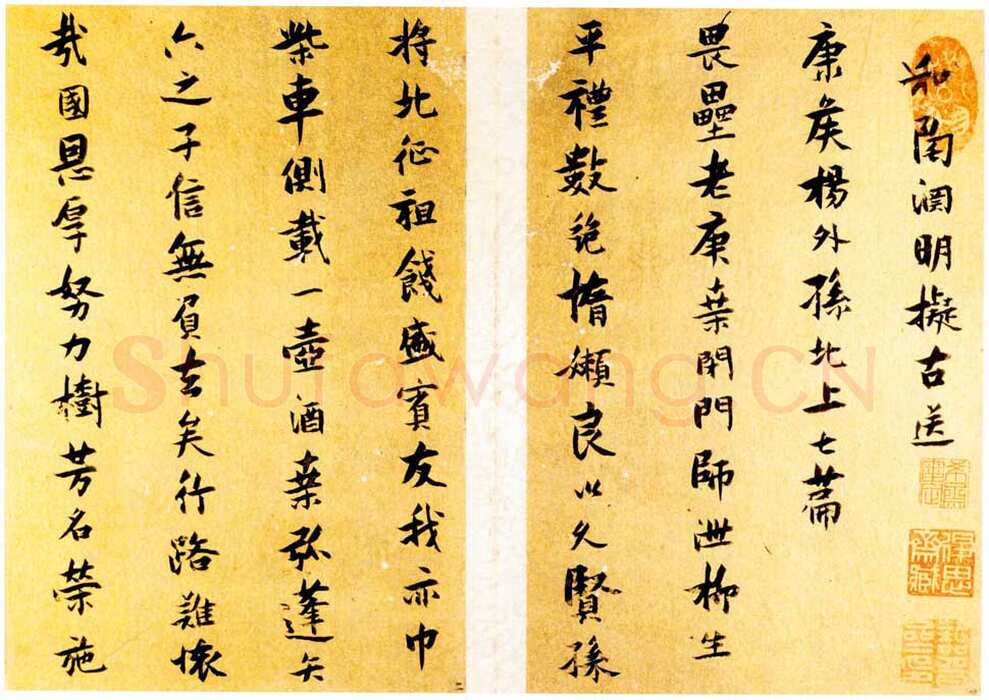 和陶淵明擬古送
康侯楊外孫北上七篇
畏壘老庚桑閉門師泄柳生
平禮數絕惰懶良以久賢孫
将北征祖餞盛賓友我亦巾
柴車側載一壺酒桑弧蓬矢
六之子信無負去矣行路難懷
哉國恩厚努力樹芳名榮施
Shufawang.CN